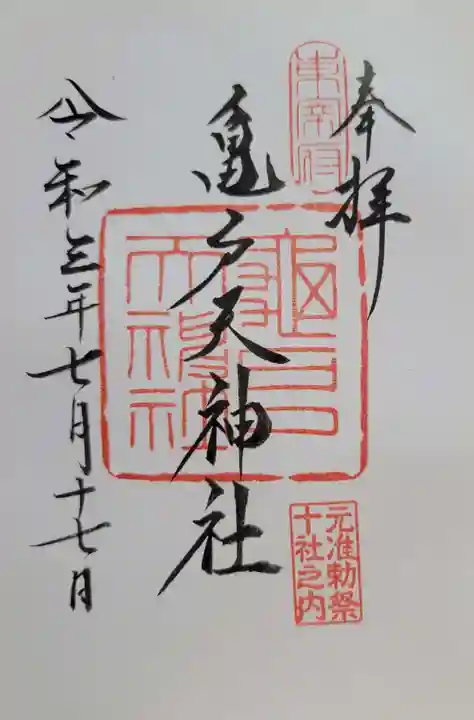 奉拝
東宰府
元准勅祭
十社之内
亀戸天神社
亀戸
天満神社
令和三年七月十七日